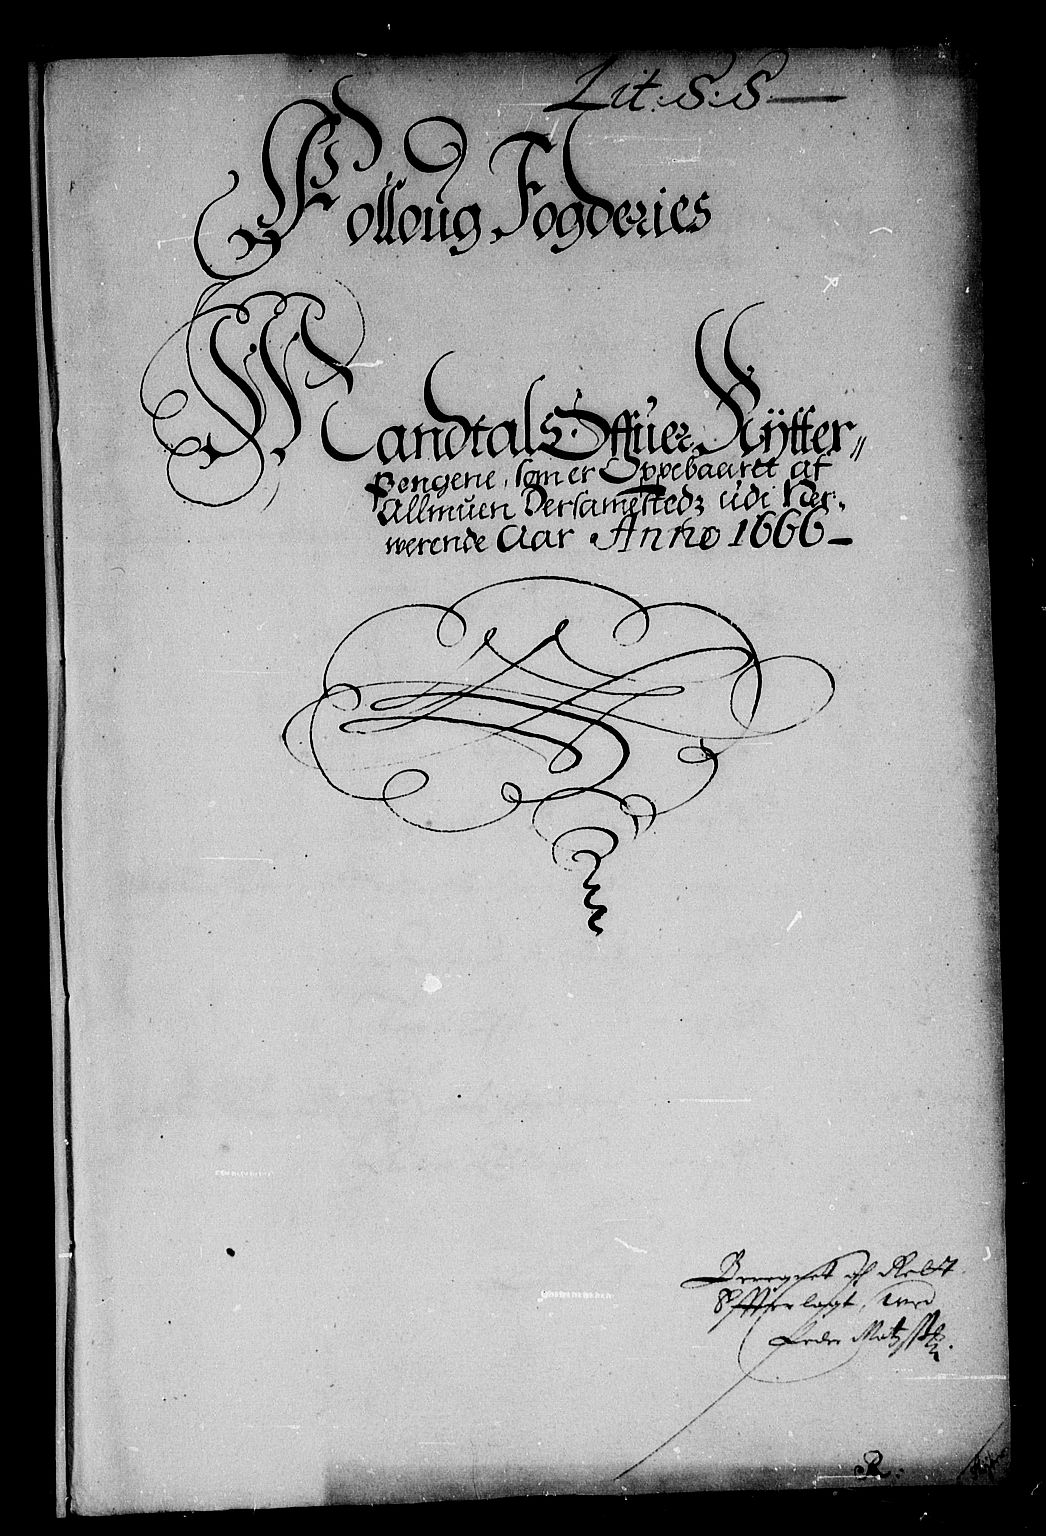 Lit: S: S
Folloug Fogderies
Mandtal Offuer Rÿtter„
Pengene, som er Oppebaaret af
Allmuen Dersamested, udi Ner„
werende Aar Anno 1666
af
Peder
R: